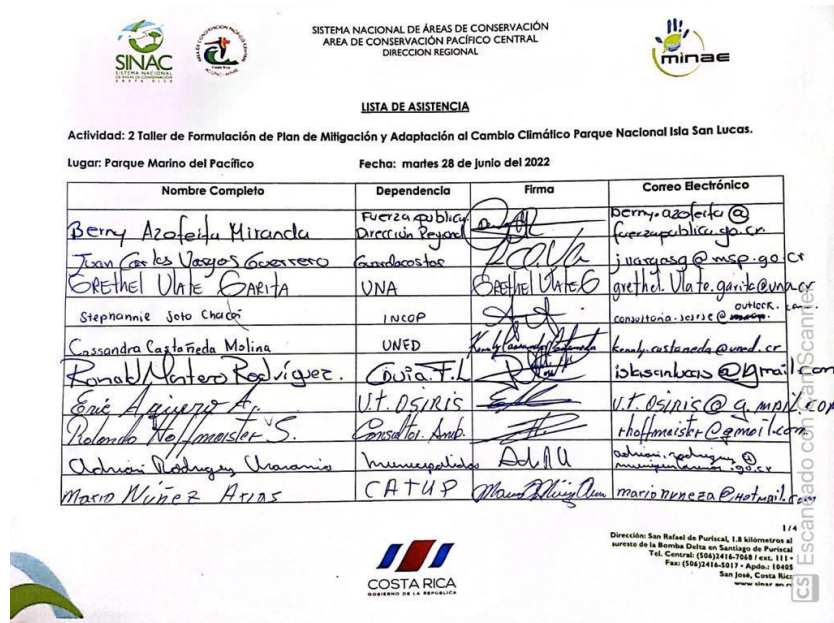 SINAC
SISTEMA NACIONAL
DE ÁREAS DE CONSERVACIÓN
COSTA RICA
SISTEMA NACIONAL DE ÁREAS DE CONSERVACIÓN
AREA DE CONSERVACIÓN PACÍFICO CENTRAL
DIRECCION REGIONAL
minae
LISTA DE ASISTENCIA
Actividad: 2 Taller de Formulación de Plan de Mitigación y Adaptación al Cambio Climático Parque Nacional Isla San Lucas.
Lugar: Parque Marino del Pacífico Fecha: martes 28 de junio del 2022
Nombre Completo Dependencia Firma Correo Electrónico
Berny Azofeifa Miranda Fuerza publica Dirección berny.azofeifa@
fuerzapublica.go.cr
Juan Carlos Vargas Guerrero Guardacostas jvargasg@msp.go.cr
GREThel UlATE GARITA UNA GREThel UlATE G grethel.Ulate.garita@una.cr
Stephannie Soto Chacón INCOP outlook.com
Cassandra Castañeda Molina UNED kenaly.castaneda@uned.cr
Ronald Montero Rodríguez. islasanlucas@gmail.com
Eric Agüero A. V.T. OSIRIS V.T.OSIRIS@g.mAIL.COM
Rolando Hoffmaister S. Consultor Amb. rhoffmaister@gmail.com
Adrian Rodriguez Municipalidad
Mario Núñez Arias CATUP marionuneza@Hotmail.com
1/4
Dirección: San Rafael de Puriscal, 1.8 kilómetros al
sureste de la Bomba Delta en Santiago de Puriscal
Tel. Central: (506)2416-7068 / ext. 111 •
Fax: (506)2416-5017 • Apdo.: 10405
San José, Costa Rica
COSTA RICA
GOBIERNO DE LA REPÚBLICA
CS Escaneado con CamScanner